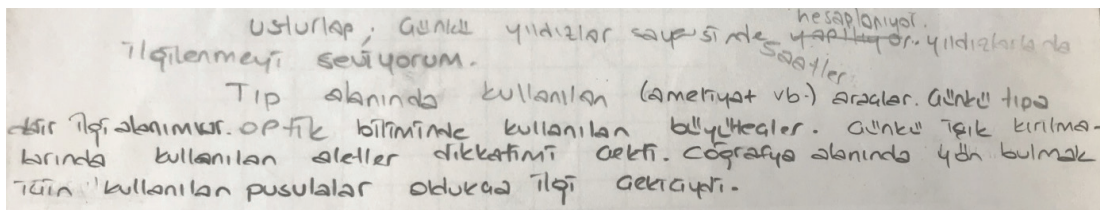 usturlap, Günkü yıldızlar sayesinde saatler hesaplanıyor. yıldızlarlada
ilgilenmeyi seviyorum.
Tıp alanında kullanılan (ameriyat vb.) araçlar. Çünkü tıpa
dair ilgi alanımvar. optik biliminde kullanılan büyüteçler. Çünkü ışık kırılma-
larında kullanılan aletler dikkatimi çekti. coğrafya alanında yön bulmak
için kullanılan pusulalar oldukça ilgi çekiciydi.